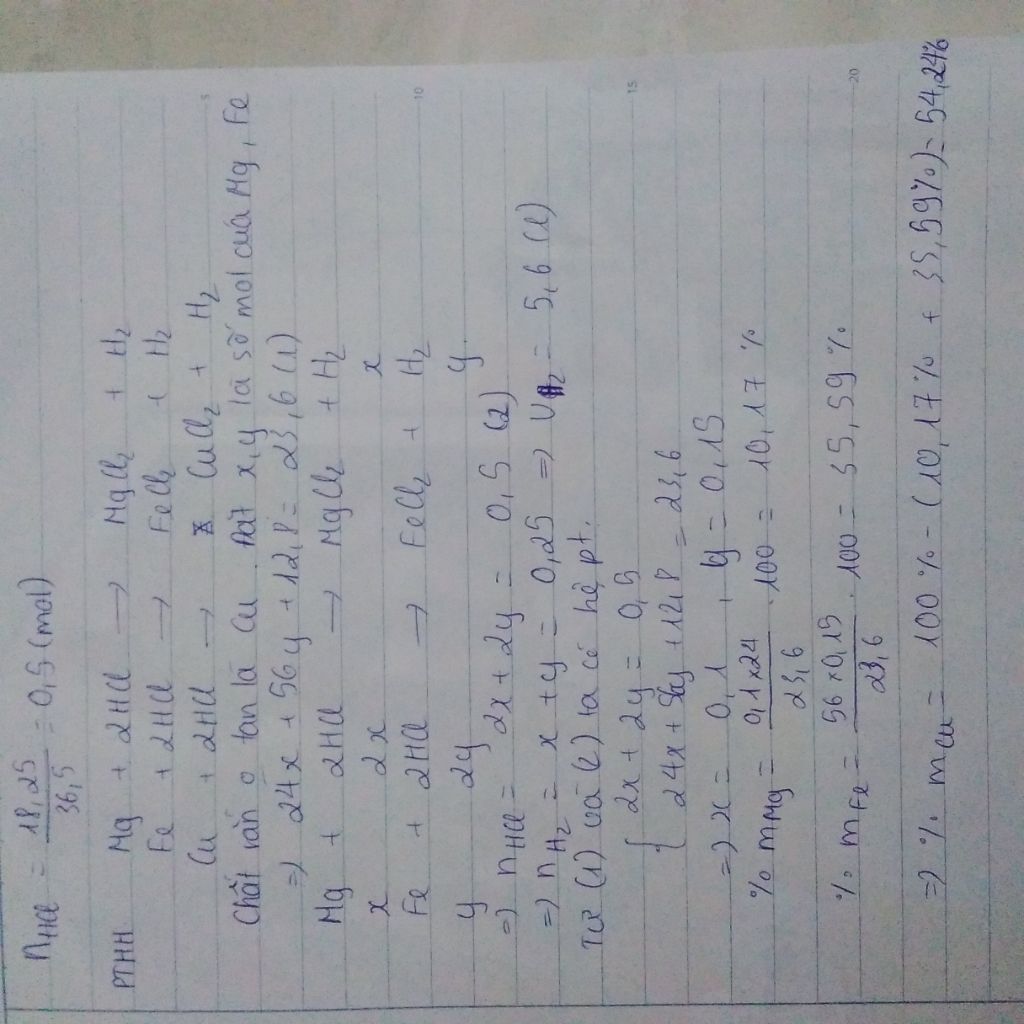 nHCl = 18,25 / 36,5 = 0,5 (mol)
PTHH Mg + 2HCl → MgCl2 + H2
Fe + 2HCl → FeCl2 + H2
Cu + 2HCl → CuCl2 + H2
Chất rắn o tan là Cu. Đặt x, y là số mol của Mg, Fe
=> 24x + 56y + 12,8 = 23,6 (1)
Mg + 2HCl → MgCl2 + H2
x 2x x
Fe + 2HCl → FeCl2 + H2
y 2y y
=> nHCl = 2x + 2y = 0,5 (2)
=> nH2 = x + y = 0,25 => VH2 = 5,6 (l)
Từ (1) và (2) ta có hệ pt.
{ 2x + 2y = 0,5
24x + 56y + 12,8 = 23,6
=> x = 0,1 , y = 0,15
% mMg = 0,1 x 24 / 23,6 . 100 = 10,17 %
% mFe = 56 x 0,15 / 23,6 . 100 = 35,59 %
=> % mCu = 100 % - (10,17 % + 35,59 %) = 54,24%
5
10
15
20